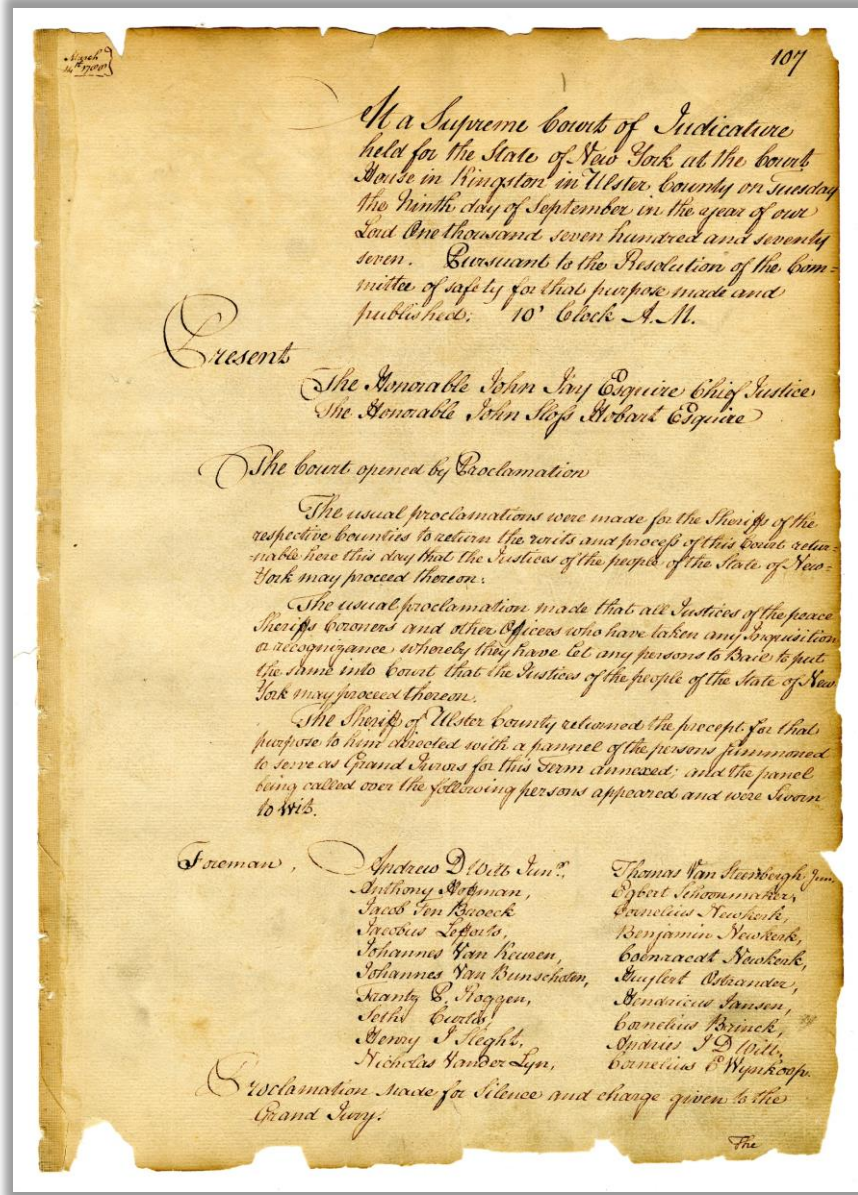 March
14th 1788
107
At a Supreme Court of Judicature
held for the State of New York at the Court
House in Kingston in Ulster County on Tuesday
the Ninth day of September in the year of our
Lord One thousand seven hundred and seventy
seven. Pursuant to the Resolution of the Com=
mittee of safety for that purpose made and
published: 10' Clock A.M.
Present
The Honorable John Jay Esquire Chief Justice
The Honorable John Sloss Hobart Esquire
The Court opened by Proclamation
The usual proclamations were made for the Sheriffs of the
respective Counties to return the writs and process of this Court retur=
=nable here this day that the Justices of the people of the State of New=
York may proceed thereon:
The usual proclamation made that all Justices of the peace
Sheriffs Coroners and other Officers who have taken any Inquisition
or recognizance whereby they have let any persons to Bail to put
the same into Court that the Justices of the people of the State of New
York may proceed thereon.
The Sheriff of Ulster County returned the precept for that
purpose to him directed with a pannel of the persons summoned
to serve as Grand Jurors for this Term annexed; and the panel
being called over the following persons appeared and were Sworn
to Wit.
Foreman, Andrew D Witt Junr, Thomas Van Steenbergh Jun,
Anthony Hoffman, Egbert Schoonmaker,
Jacob Ten Broeck Cornelius Newkerk,
Jacobus Lefferts, Benjamin Newkerk,
Johannes Van Keuren, Coenraedt Newkerk,
Johannes Van Bunschoten, Huylert Ostrander,
Frantz P. Roggen, Hendricus Jansen,
Seth Curtis, Cornelius Brinck,
Henry J Sleght, Andries J D Witt,
Nicholas Vander Lyn, Cornelius E Wynkoop.
Proclamation made for Silence and charge given to the
Grand Jury.
The